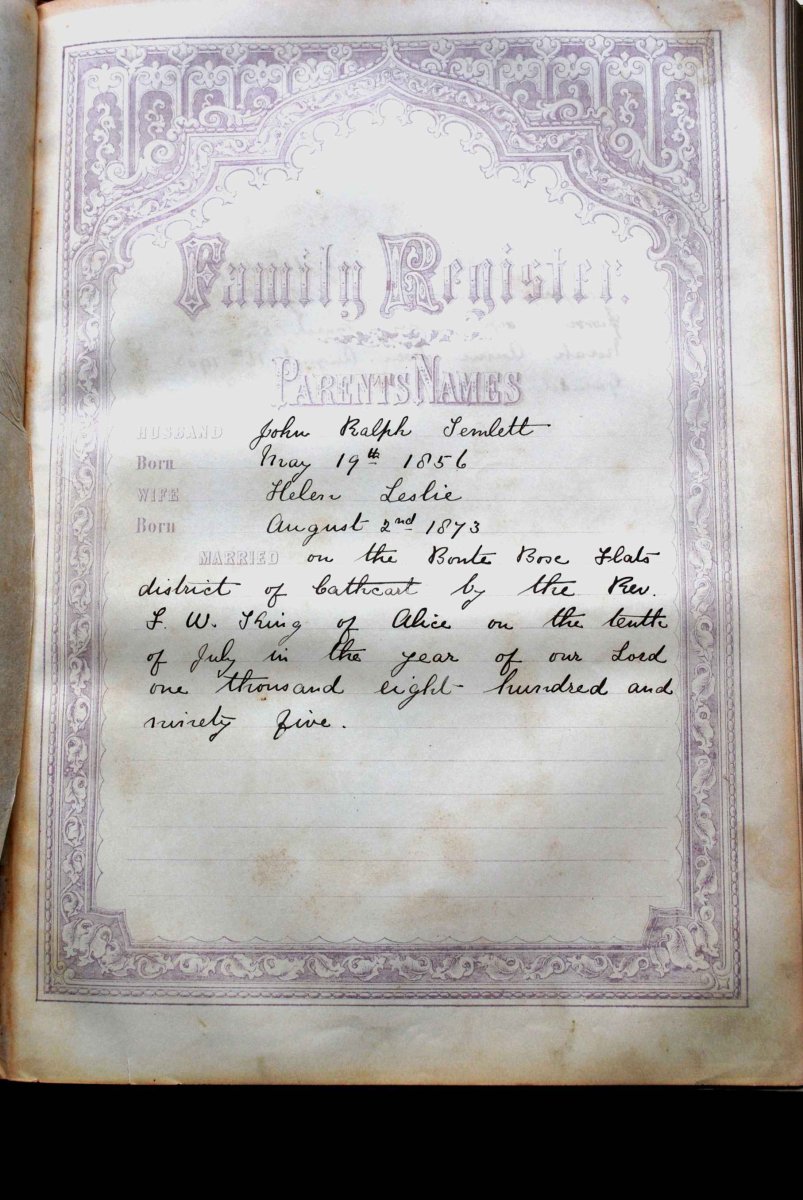 Family Register.
PARENTS NAMES
HUSBAND John Ralph Temlett
Born May 19th 1856
WIFE Helen Leslie
Born August 2nd 1873
MARRIED on the Bonte Bose Flats
district of Cathcart by the Rev.
of Alice on the tenth
of July in the year of our Lord
one thousand eight hundred and
ninety five.